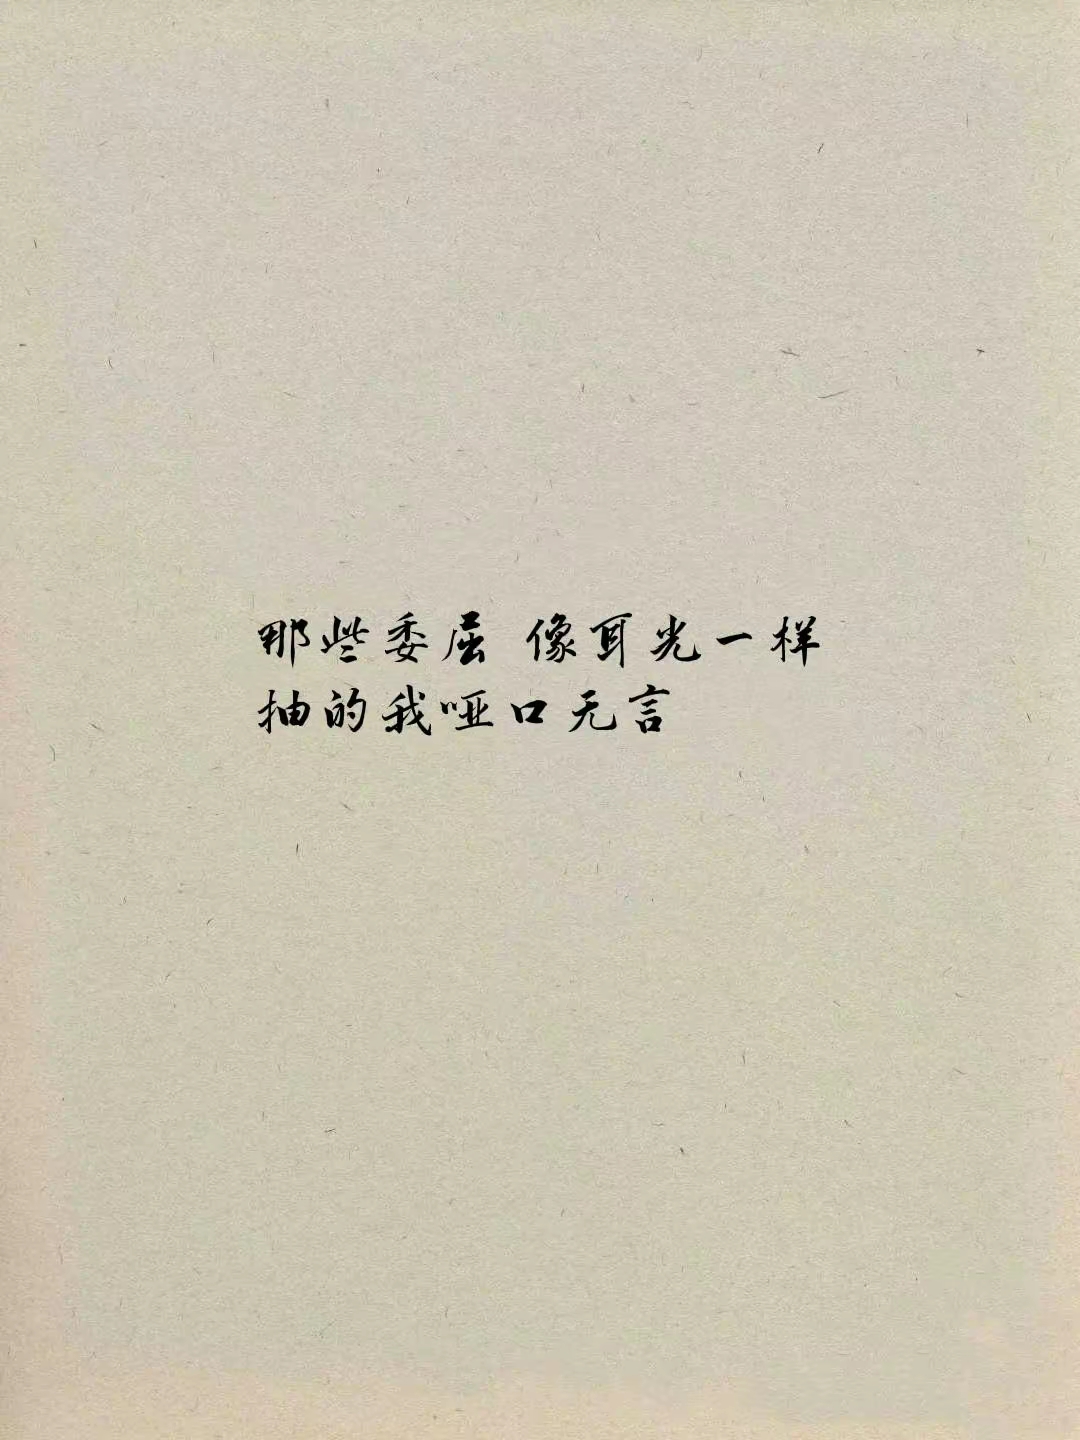 那些委屈 像耳光一样
抽的我哑口无言